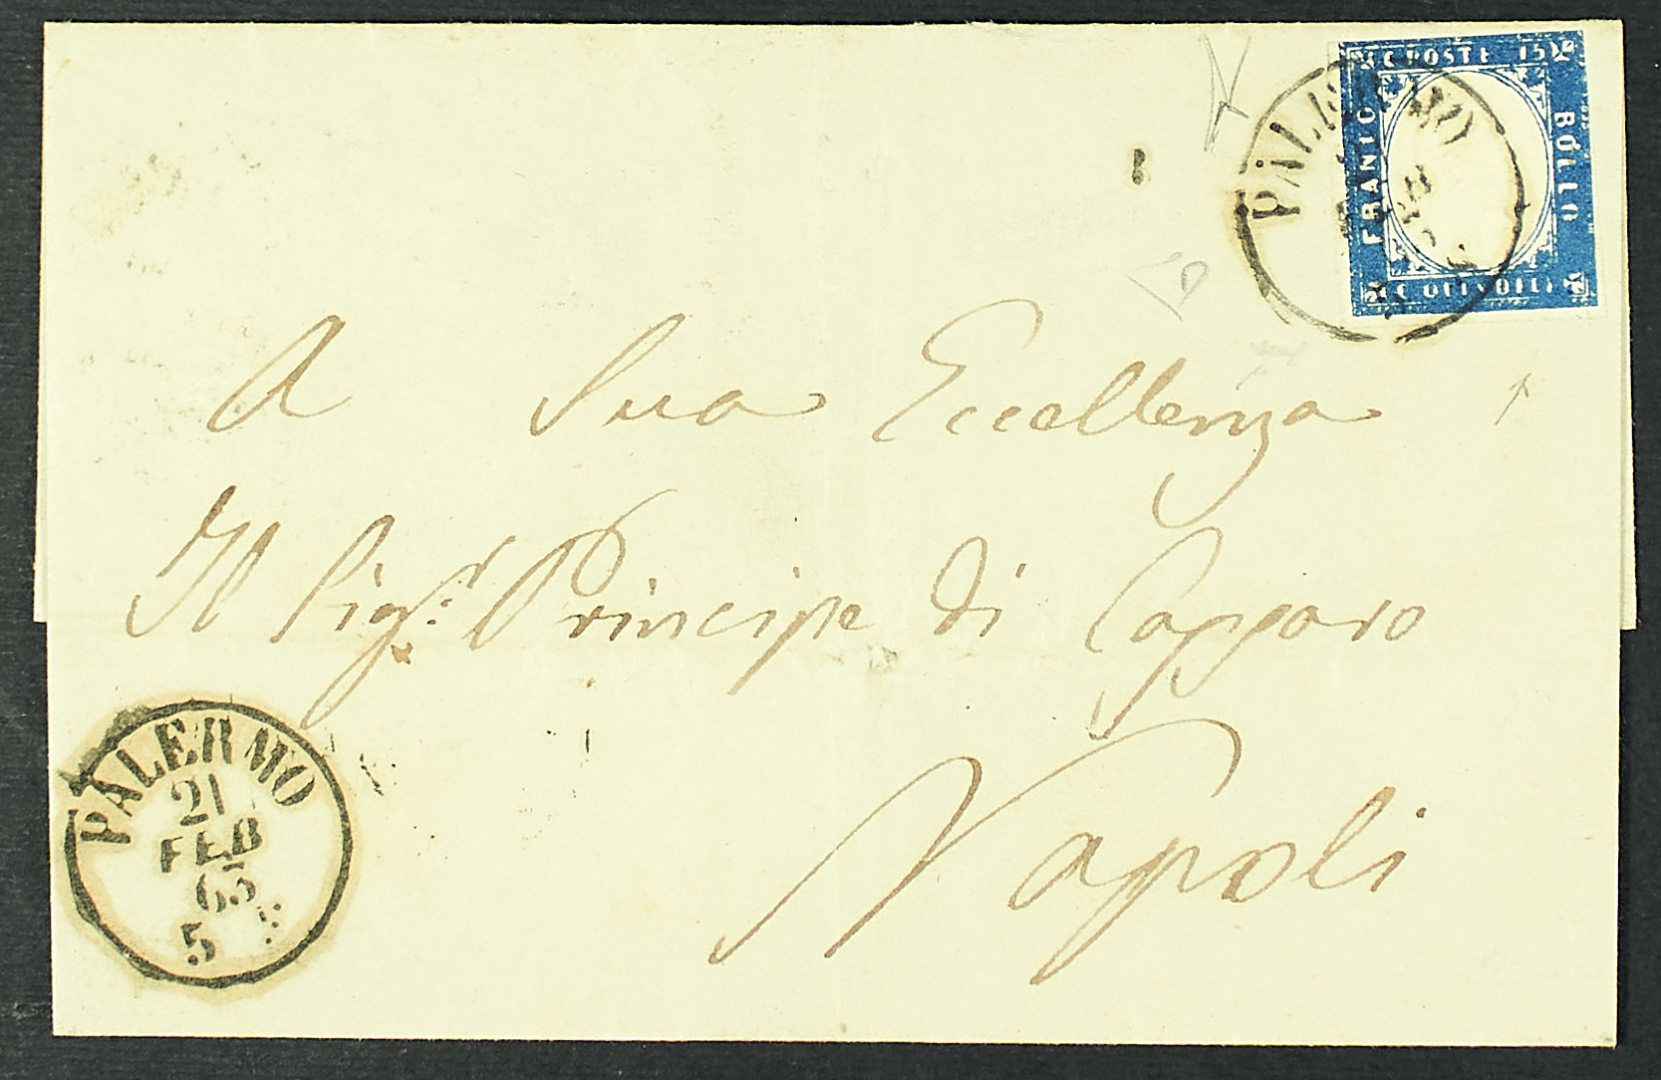 C POSTE 15
FRANCO
BOLLO
C QUINDICI
PALERMO
A Sua Eccellenza
Il Sigr. Principe di Capparo
Napoli
PALERMO
21
FEB
63
5